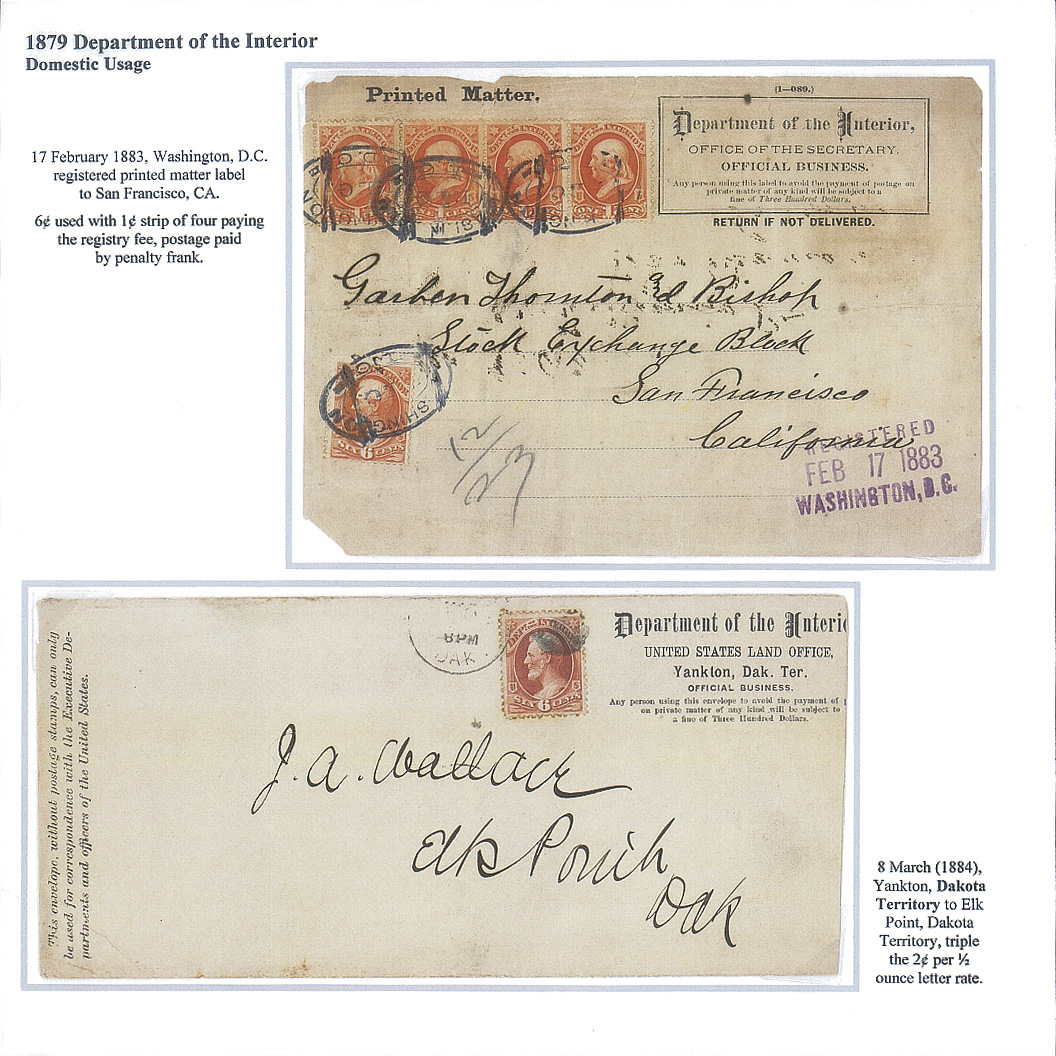 1879 Department of the Interior
Domestic Usage
17 February 1883, Washington, D.C.
registered printed matter label
to San Francisco, CA.
6¢ used with 1¢ strip of four paying
the registry fee, postage paid
by penalty frank.
Printed Matter.
(1—089.)
Department of the Interior,
OFFICE OF THE SECRETARY.
OFFICIAL BUSINESS.
Any person using this label to avoid the payment of postage on
private matter of any kind will be subject to a
fine of Three Hundred Dollars.
RETURN IF NOT DELIVERED.
Garben Thornton & Bishop
Stock Exchange Block
San Francisco
California
SIX 6 CENTS
12/23
REGISTERED
FEB 17 1883
WASHINGTON, D.C.
This envelope, without postage stamps, can only
be used for correspondence with the Executive De-
partments and officers of the United States.
8 PM
DAK
DEPT. OF THE INTERIOR
U S
SIX 6 CENTS
Department of the Interio
UNITED STATES LAND OFFICE,
Yankton, Dak. Ter.
OFFICIAL BUSINESS.
Any person using this envelope to avoid the payment of p
on private matter of any kind will be subject to
a fine of Three Hundred Dollars.
J. A. Wallace
Elk Point
Dak
8 March (1884),
Yankton, Dakota
Territory to Elk
Point, Dakota
Territory, triple
the 2¢ per ½
ounce letter rate.